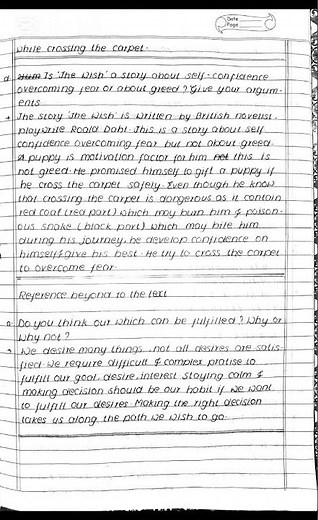 Date
Page
while crossing the carpet.
d. Is 'The Wish' a story about self-confidence
overcoming fear or about greed? Give your argum-
ents
→ The story 'The wish' is written by British novelist,
playwrite Roald Dahl. This is a story about self
confidence overcoming fear but not about greed.
A puppy is motivation factor for him this is
not greed. He promised himself to gift a puppy if
he cross the carpet safely. Even though he know
that crossing the carpet is dangerous as it contain
red coal (red part) which may burn him & poison-
ous snake (black part) which may bite him
during his journey, he develop confidence on
himself & give his best. He try to cross the carpet
to overcome fear.
Reference beyond to the text
a. Do you think our which can be fulfilled? Why or
why not?
→ We desire many things, not all desires are satis-
fied. We require difficult & complex pratise to
fulfill our goal, desire, interest staying calm &
making decision should be our habit if we want
to fulfill our desires. Making the right decision
takes us along the path we wish to go.